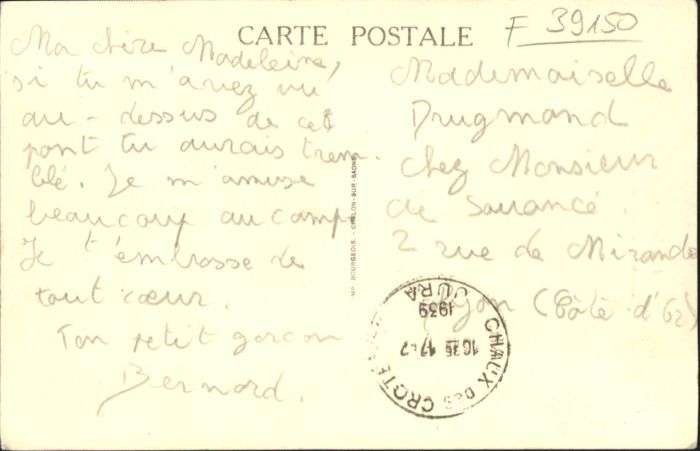 CARTE POSTALE
F 39150
Ma chère Madeleine,
si tu m'avez vu
au-dessus de cet
pont tu aurais trem-
blé. Je m'amuse
beaucoup au camp
Je t'embrasse de
tout cœur.
Ton petit garçon
Bernard.
Mademoiselle
Drugmand
chez Monsieur
de Souancé
2 rue de Mirande
Dijon (Côte d'Or)
IMP. BOURGEOIS. - CHALON-SUR-SAONE
CHAUX DES CROTENAY
JURA
1939